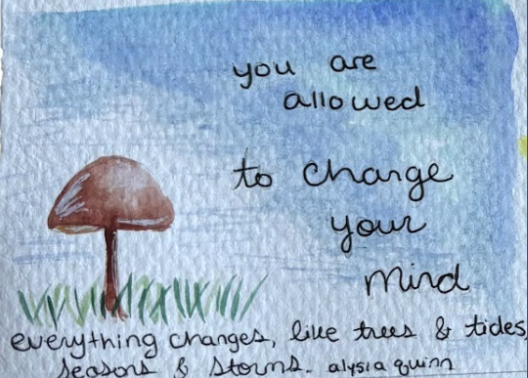 you are
allowed
to change
your
mind
everything changes, like trees & tides,
seasons & storms. alysia quinn